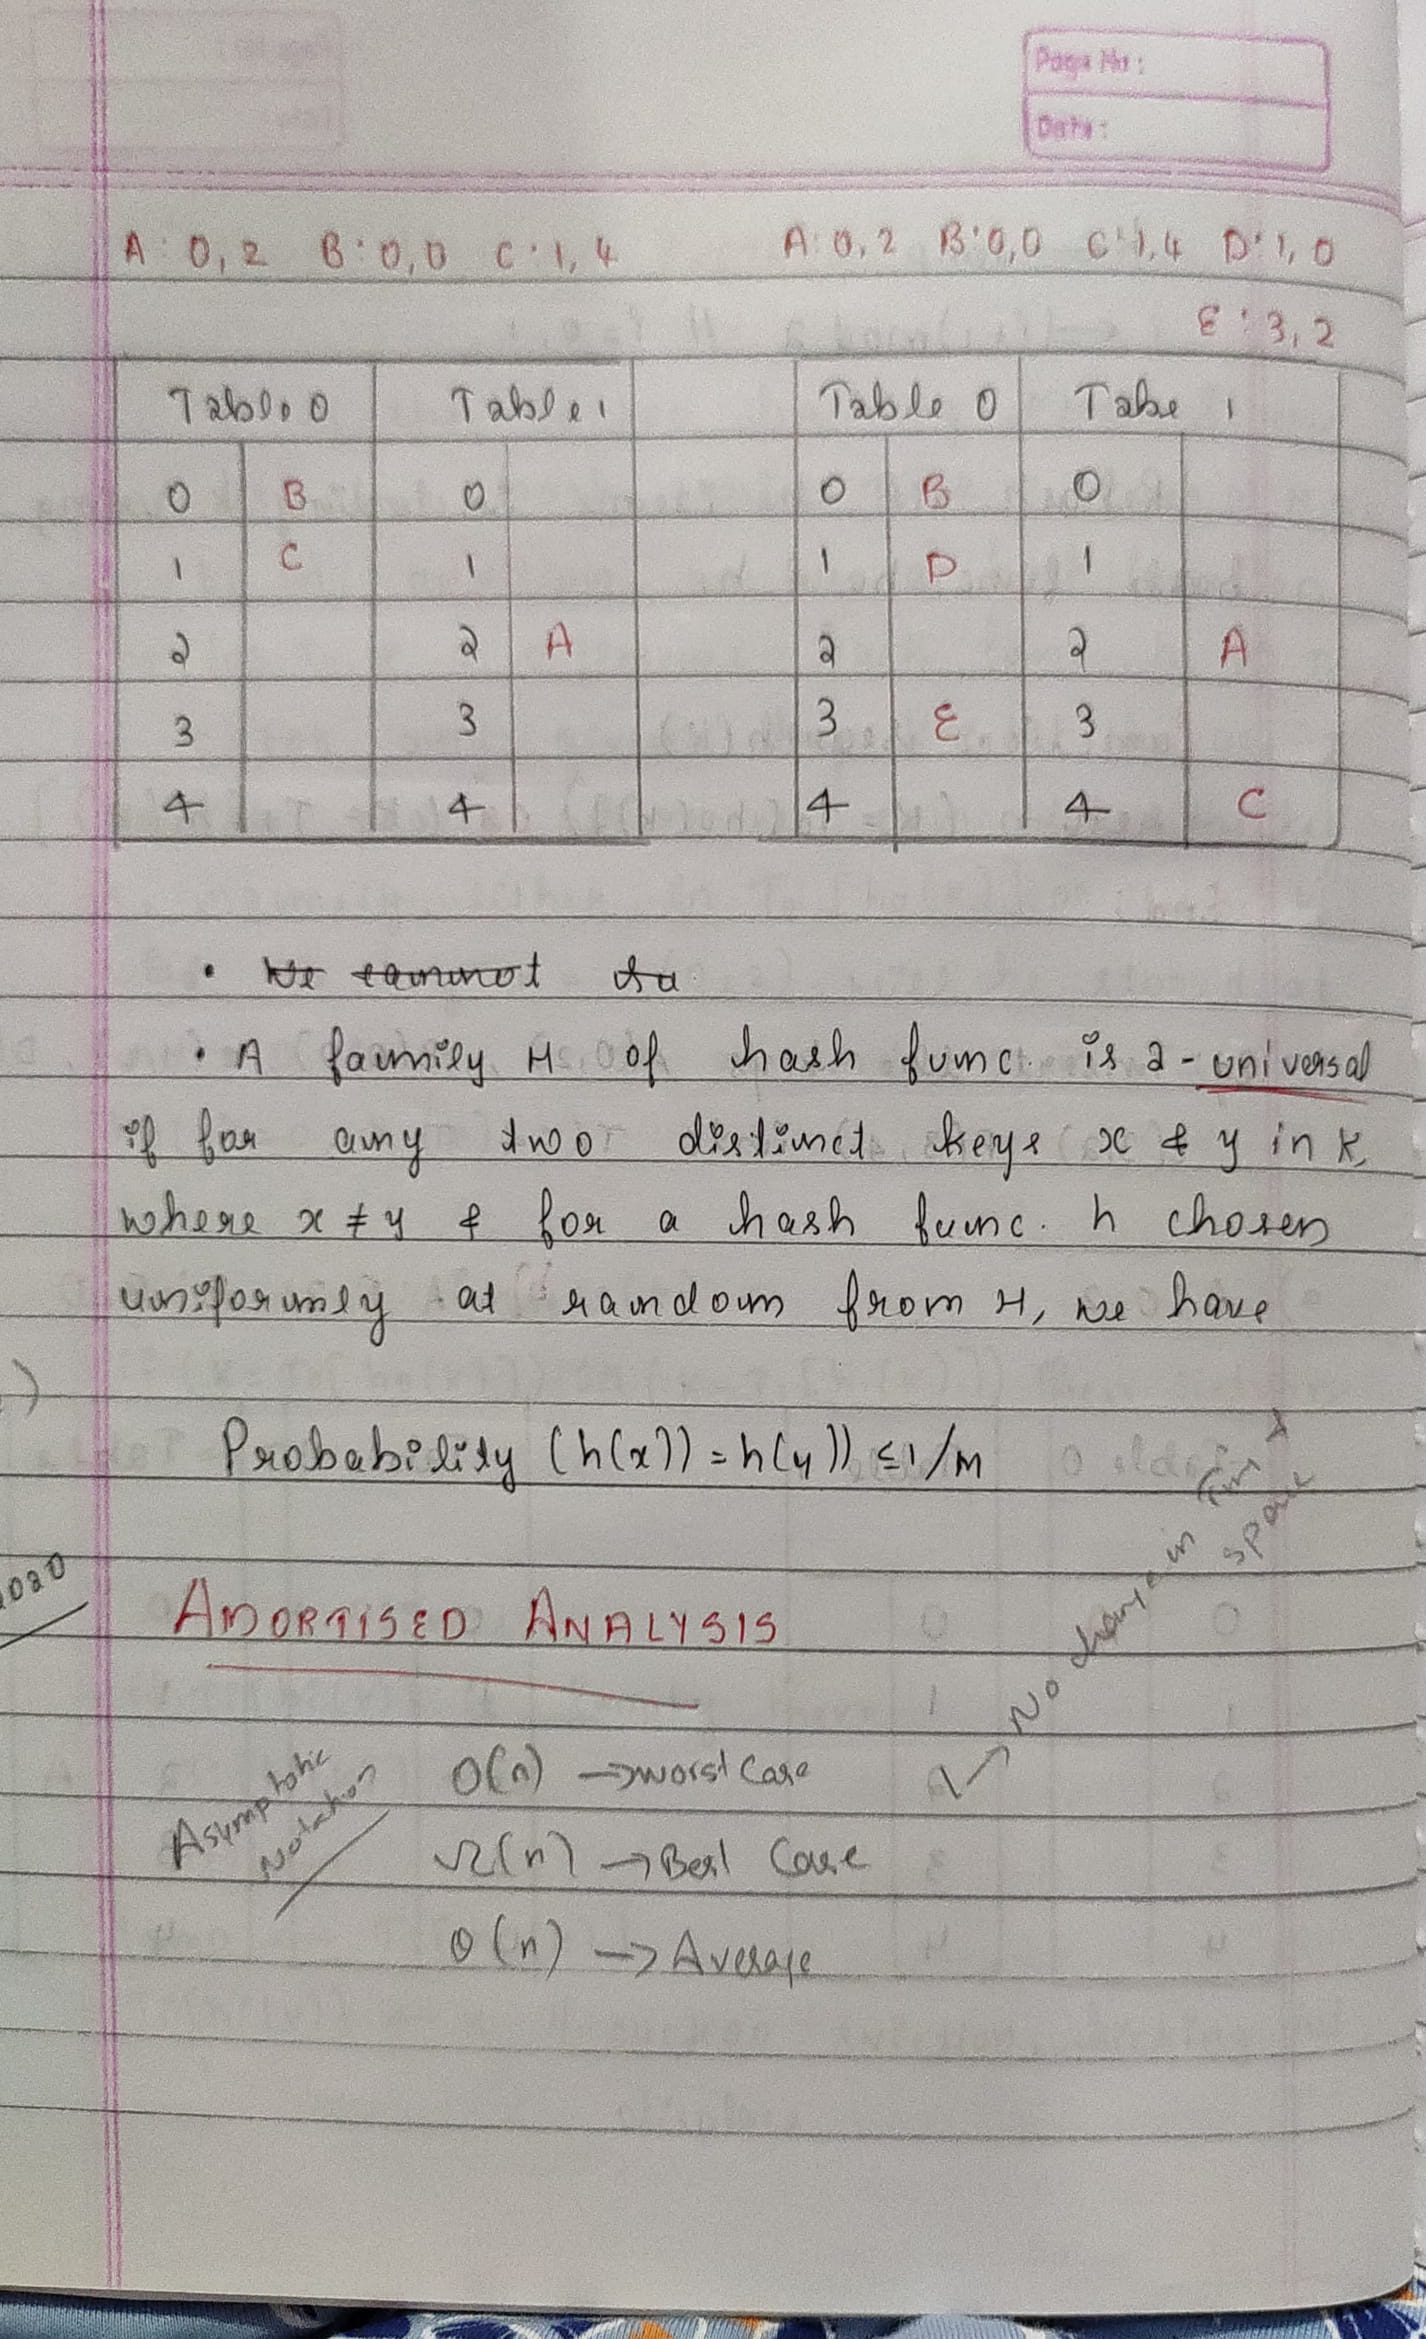 Page No:
Date:
A: 0, 2 B: 0, 0 C: 1, 4 A: 0, 2 B: 0, 0 C: 1, 4 D: 1, 0
E: 3, 2
Table 0 Table 1 Table 0 Tabe 1
0 B 0 0 B 0
1 C 1 1 D 1
2 2 A 2 2 A
3 3 3 E 3
4 4 4 4 C
• We cannot
• A family H of hash func. is 2-universal
if for any two distinct keys x & y in K,
where x ≠ y & for a hash func. h chosen
uniformly at random from H, we have
Probability (h(x)) = h(y)) ≤ 1/m
AMORTISED ANALYSIS
Asymptotic
Notation
O(n) → Worst Case
Ω(n) → Best Case
Θ(n) → Average
→ No change in Tim &
space